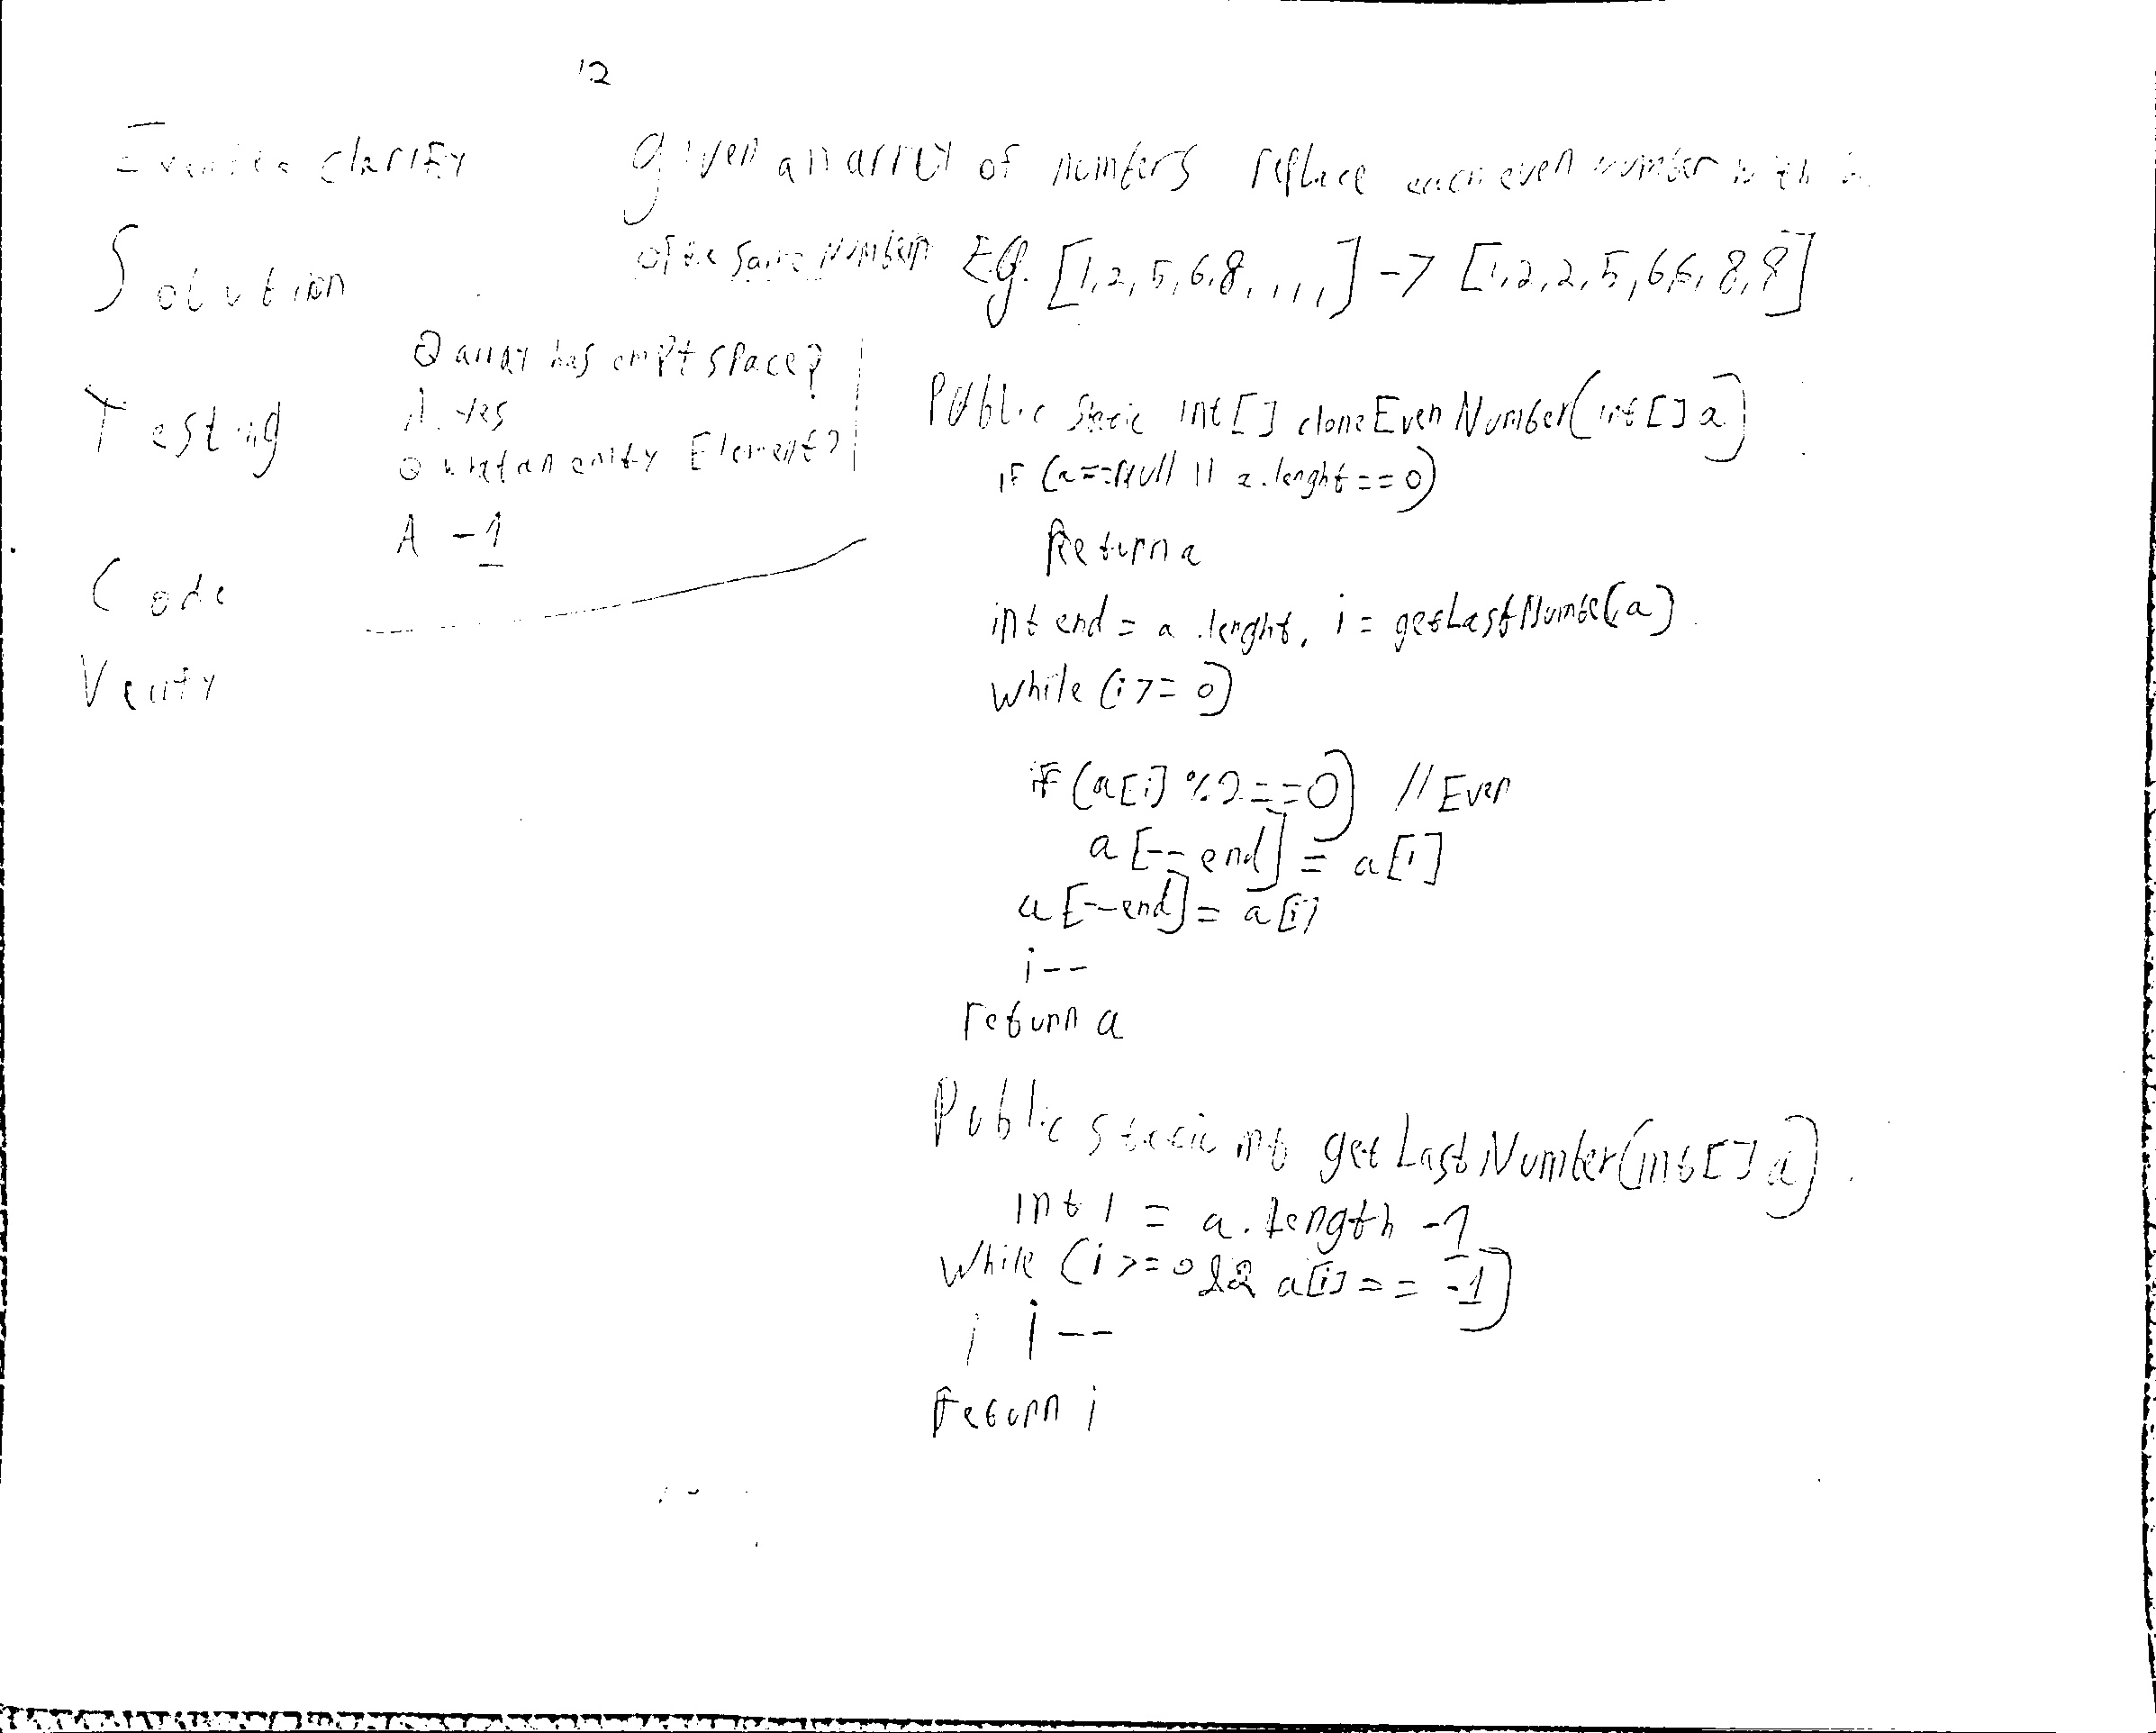 12
clarify
given an array of numbers replace each even number with 2
of the same number Eg. [1,2,5,6,8,,,,] -> [1,2,2,5,6,6,8,8]
Solution
Q array has empt space?
A. yes
Q what an emty Element?
A -1
Testing
Code
Verify
Public static int[] cloneEvenNumber(int[] a)
if (a==Null || a.lenght==0)
Return a
int end = a.lenght, i = getLastNumbe(a)
while (i >= 0)
if (a[i] %2==0) // Even
a[--end] = a[i]
a[--end] = a[i]
i--
return a
Public static int getLastNumber(int[] a)
int i = a.length -1
while (i >= 0 && a[i] == -1)
i--
return i